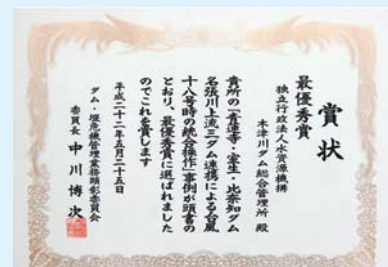 賞状
最優秀賞
独立行政法人水資源機構
木津川ダム総合管理所 殿
貴所の「青蓮寺・室生・比奈知ダム
名張川上流三ダム連携による台風
十八号時の統合操作」事例が頭書の
とおり、最優秀賞に選ばれました
のでこれを賞します
平成二十二年五月二十五日
ダム・堰危機管理業務顕彰委員会
委員長 中川博次